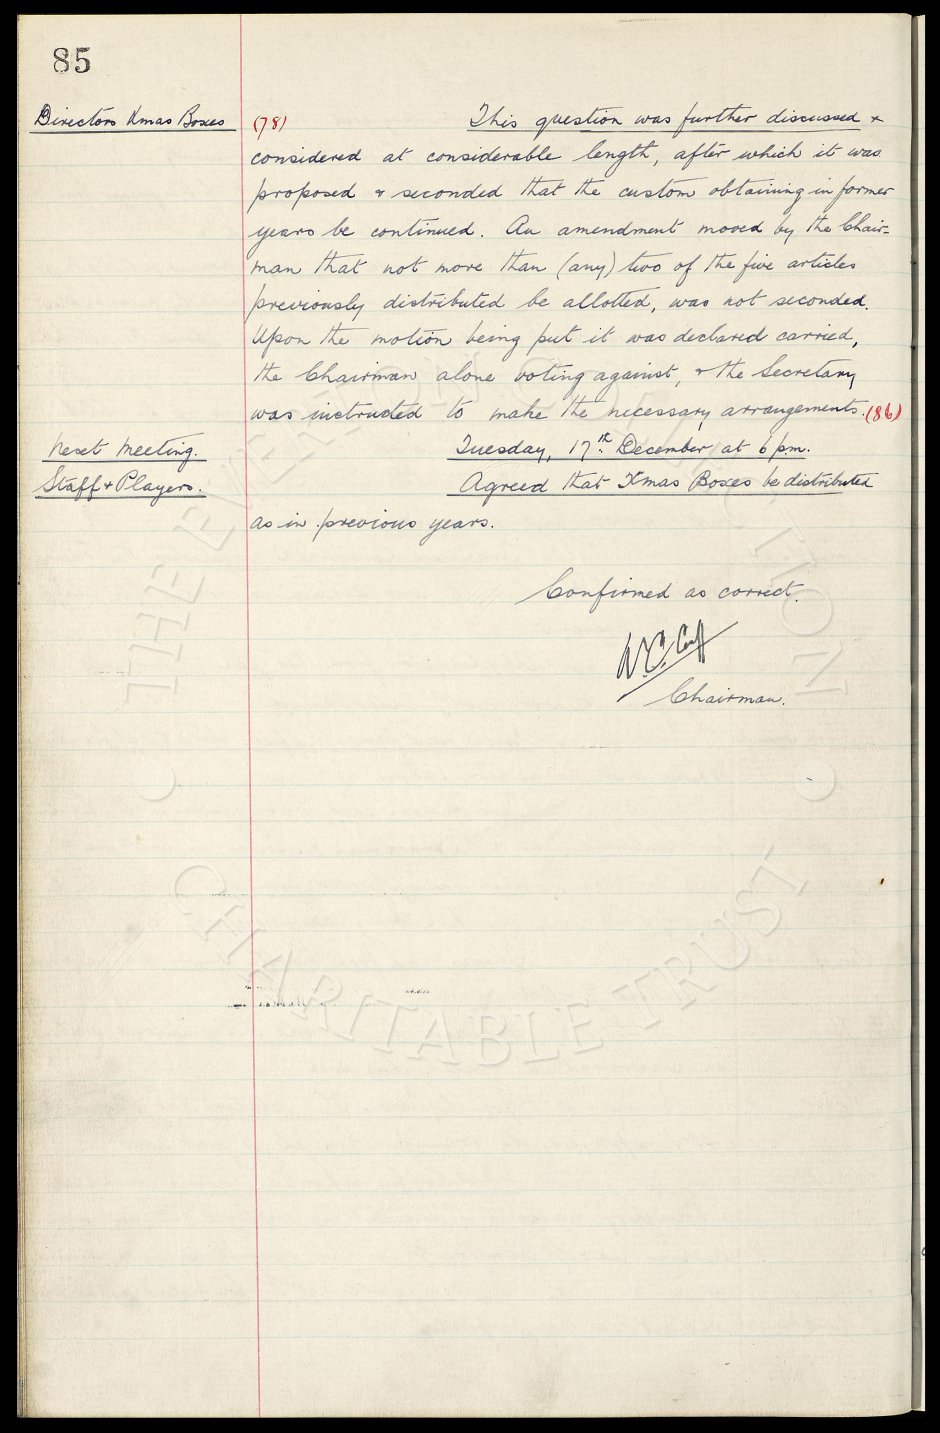 85
Directors Xmas Boxes (78) This question was further discussed &
considered at considerable length, after which it was
proposed & seconded that the custom obtaining in former
years be continued. An amendment moved by the Chair=
man that not more than (any) two of the five articles
previously distributed be allotted, was not seconded.
Upon the motion being put it was declared carried,
the Chairman alone voting against, & the Secretary
was instructed to make the necessary arrangements. (86)
Next Meeting. Tuesday, 17th December at 6 pm.
Staff & Players. Agreed that Xmas Boxes be distributed
as in previous years.
Confirmed as correct.
W.C. Cuff
Chairman.
THE EVERTON COLLECTION
CHARITABLE TRUST